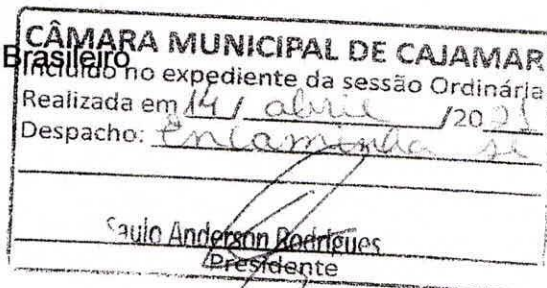 CÂMARA MUNICIPAL DE CAJAMAR
Brasileiro
Incluido no expediente da sessão Ordinária
Realizada em 14 / abril /2021
Despacho: Encaminha se
Saulo Anderson Rodrigues
Presidente